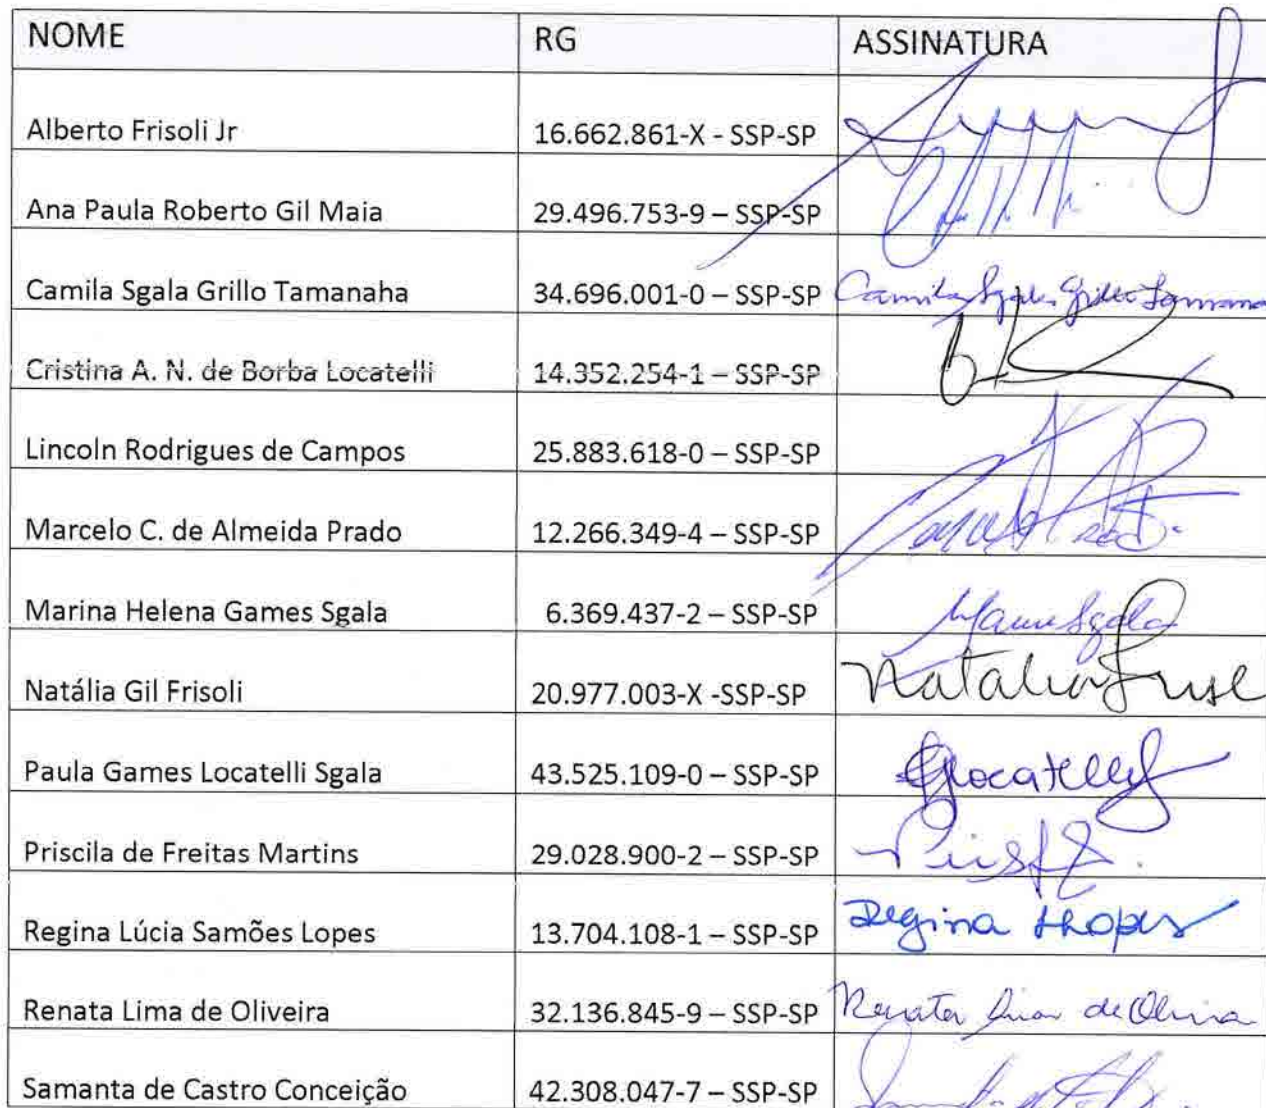 NOME RG ASSINATURA
Alberto Frisoli Jr 16.662.861-X - SSP-SP
Ana Paula Roberto Gil Maia 29.496.753-9 – SSP-SP
Camila Sgala Grillo Tamanaha 34.696.001-0 – SSP-SP Camila Sgala Grillo Tamana
Cristina A. N. de Borba Locatelli 14.352.254-1 – SSP-SP
Lincoln Rodrigues de Campos 25.883.618-0 – SSP-SP
Marcelo C. de Almeida Prado 12.266.349-4 – SSP-SP
Marina Helena Games Sgala 6.369.437-2 – SSP-SP
Natália Gil Frisoli 20.977.003-X -SSP-SP Natalia
Paula Games Locatelli Sgala 43.525.109-0 – SSP-SP
Priscila de Freitas Martins 29.028.900-2 – SSP-SP
Regina Lúcia Samões Lopes 13.704.108-1 – SSP-SP Regina
Renata Lima de Oliveira 32.136.845-9 – SSP-SP Renata Lima de
Samanta de Castro Conceição 42.308.047-7 – SSP-SP